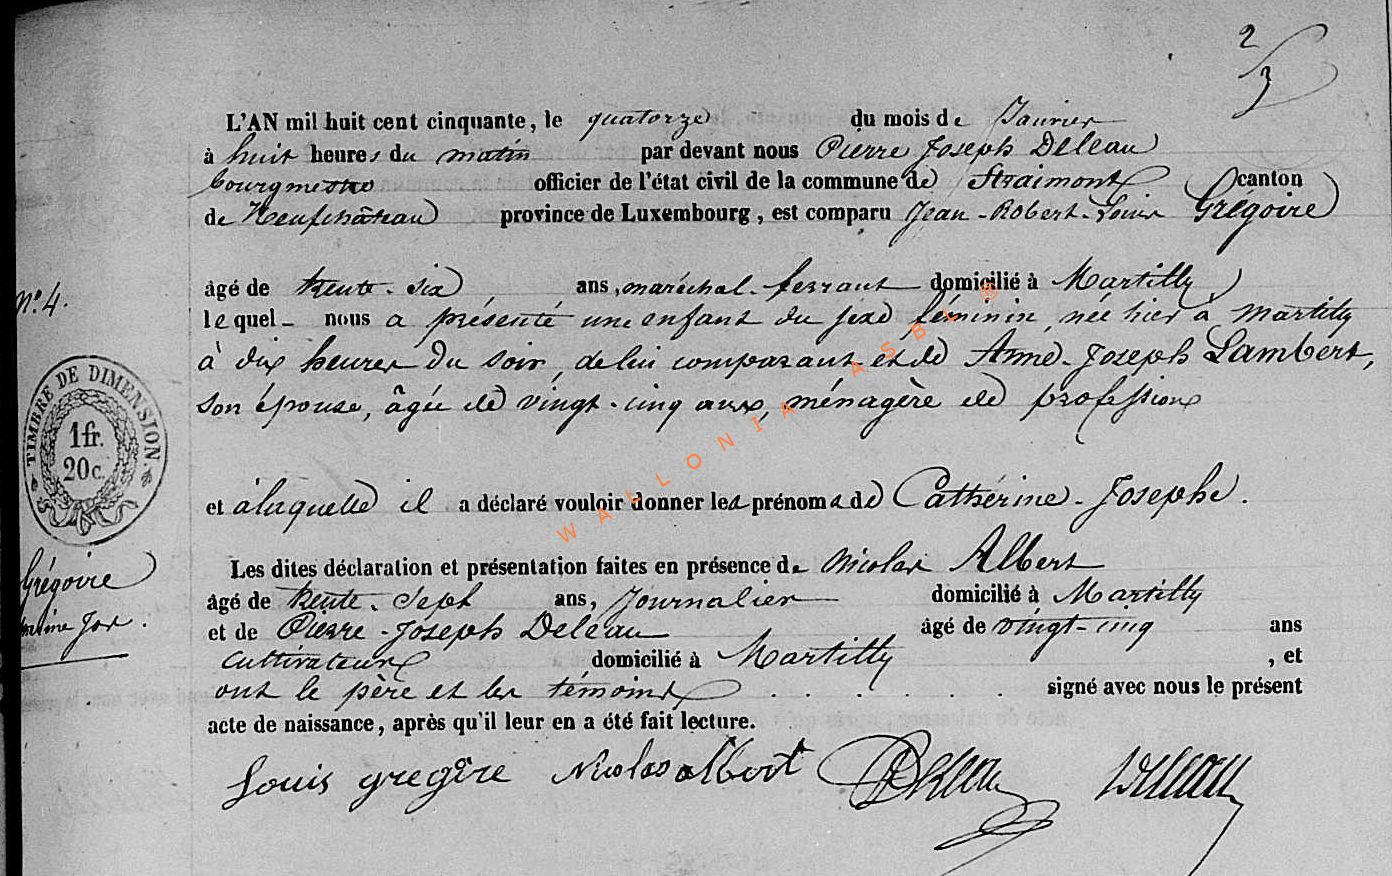 2/3
L'AN mil huit cent cinquante, le quatorze du mois de Janvier
à huit heures du matin par devant nous Pierre Joseph Deleau
bourgmestre officier de l'état civil de la commune de Straimont canton
de Neufchâteau province de Luxembourg, est comparu Jean-Robert-Louis Grégoire
âgé de trente-six ans, maréchal-ferrant domicilié à Martilly
N° 4.
lequel nous a présenté une enfant du sexe féminin, née hier à Martilly
à dix heures du soir, de lui comparant et de Anne-Joseph Lambert,
son épouse, âgée de vingt-cinq ans, ménagère de profession
TIMBRE DE DIMENSION
1 fr.
20 c.
et à laquelle il a déclaré vouloir donner les prénoms de Cathérine-Josephe.
Les dites déclaration et présentation faites en présence de Nicolas Albert
Grégoire
âgé de trente-sept ans, Journalier domicilié à Martilly
et de Pierre-Joseph Deleau âgé de vingt-cinq ans
cultivateur domicilié à Martilly , et
ont le père et les témoins . . . . . . . signé avec nous le présent
acte de naissance, après qu'il leur en a été fait lecture.
Louis gregère Nicolas albert Deleau Deleau
WALLONIA ASBL ®